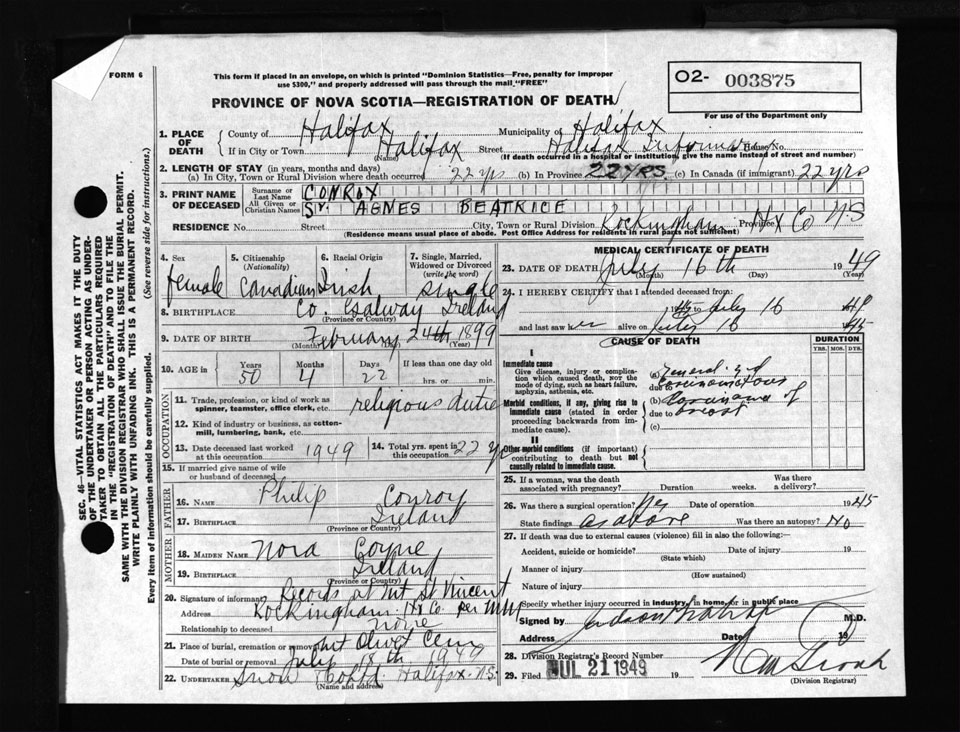 FORM 6
This form if placed in an envelope, on which is printed "Dominion Statistics—Free, penalty for improper
use $300," and properly addressed will pass through the mail, "FREE"
O2- 003875
For use of the Department only
PROVINCE OF NOVA SCOTIA—REGISTRATION OF DEATH
1. PLACE OF DEATH
County of Halifax Municipality of Halifax
If in City or Town Halifax Street Halifax Infirmary House No.
(Name) (If death occurred in a hospital or institution, give the name instead of street and number)
2. LENGTH OF STAY (in years, months and days)
(a) In City, Town or Rural Division where death occurred 22 yrs (b) In Province 22 YRS. (c) In Canada (if immigrant) 22 yrs
3. PRINT NAME OF DECEASED
Surname or Last Name CONROY
All Given or Christian Names Sr. AGNES BEATRICE
RESIDENCE No. Street City, Town or Rural Division Rockingham Province Hx Co N.S
(Residence means usual place of abode. Post Office Address for residents in rural parts not sufficient)
4. Sex female
5. Citizenship (Nationality) Canadian
6. Racial Origin Irish
7. Single, Married, Widowed or Divorced (write the word) single
8. BIRTHPLACE Co. Galway Ireland
(Province or Country)
9. DATE OF BIRTH February 24th 1899
(Month) (Year)
10. AGE in Years 50 Months 4 Days 22 If less than one day old hrs. or min.
OCCUPATION
11. Trade, profession, or kind of work as spinner, teamster, office clerk, etc. religious duties
12. Kind of industry or business, as cotton-mill, lumbering, bank, etc.
13. Date deceased last worked at this occupation 1949
14. Total yrs. spent in this occupation 22 yrs
15. If married give name of wife or husband of deceased
FATHER
16. NAME Philip Conroy
17. BIRTHPLACE Ireland
(Province or Country)
MOTHER
18. MAIDEN NAME Nora Coyne
19. BIRTHPLACE Ireland
(Province or Country)
20. Signature of informant Records at Mt St Vincent
Address Rockingham Hx Co. per
Relationship to deceased none
21. Place of burial, cremation or removal Mt Olivet Cem
Date of burial or removal July 18th 1949
22. UNDERTAKER Snow & Co Ltd. Halifax N.S.
(Name and address)
MEDICAL CERTIFICATE OF DEATH
23. DATE OF DEATH July 16th 1949
(Month) (Day) (Year)
24. I HEREBY CERTIFY that I attended deceased from
to July 16 49
and last saw her alive on July 16
CAUSE OF DEATH
DURATION
YRS. MOS. DYS.
I
Immediate cause
Give disease, injury or complication which caused death, NOT the mode of dying, such as heart failure, asphyxia, asthenia, etc.
(a)
due to
Morbid conditions, if any, giving rise to immediate cause (stated in order proceeding backwards from immediate cause).
(b) Carcinoma of
due to breast
(c)
II
Other morbid conditions (if important) contributing to death but not causally related to immediate cause.
25. If a woman, was the death associated with pregnancy? Duration weeks. Was there a delivery?
26. Was there a surgical operation? Yes Date of operation 1945
State findings as above Was there an autopsy? No
27. If death was due to external causes (violence) fill in also the following:—
Accident, suicide or homicide? Date of injury 19
(State which)
Manner of injury
(How sustained)
Nature of injury
Specify whether injury occurred in industry, in home, or in public place
Signed by M.D.
Address Date 19
28. Division Registrar's Record Number
29. Filed JUL 21 1949 19
(Division Registrar)
SEC. 46—VITAL STATISTICS ACT MAKES IT THE DUTY
OF THE UNDERTAKER OR PERSON ACTING AS UNDER-
TAKER TO OBTAIN ALL THE PARTICULARS REQUIRED
IN THE "REGISTRATION OF DEATH" AND TO FILE THE
SAME WITH THE DIVISION REGISTRAR WHO SHALL ISSUE THE BURIAL PERMIT.
WRITE PLAINLY WITH UNFADING INK. THIS IS A PERMANENT RECORD.
Every item of information should be carefully supplied. (See reverse side for instructions.)